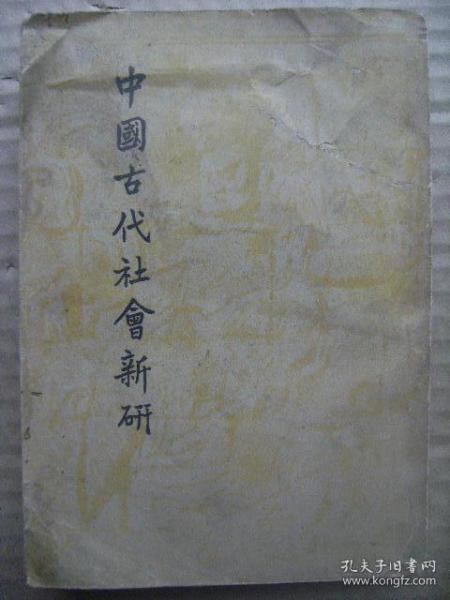 中國古代社會新研
孔夫子旧书网
www.kongfz.com